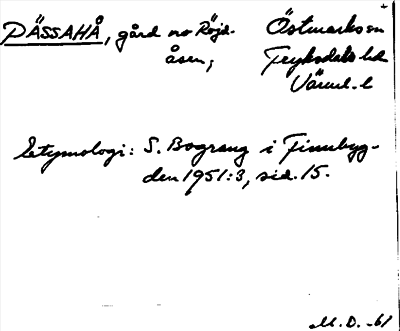 PÄSSAHÅ, gård nv Röjd-
åsen;
Östmarks sn
Fryksdals hd
Värml. l
Etymologi: S. Bograng i Finnbyg-
den 1951:3, sid. 15.
M. D. -61